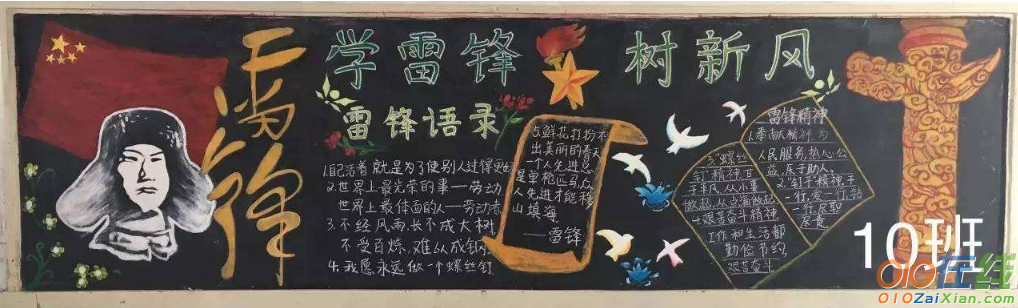 雷锋
学雷锋 树新风
雷锋语录
1.自己活着就是为了使别人过得更好
2.世界上最光荣的事——劳动
世界上最体面的人——劳动者
3.不经风雨,长不成大树
不受百炼,难以成钢
4.我愿永远做一个螺丝钉
5.一朵鲜花打扮不
出美丽的春天
一个人先进总
是单枪匹马,众
人先进才能移
山填海
——雷锋
雷锋精神
1.奉献精神:为
人民服务,热心公
益,乐于助人。
2.钉子精神:干
一行,爱一行,钻
一行
尽责
3."螺丝
钉"精神:
于平凡,从小事
做起,从点滴做起
4.艰苦奋斗精神
工作和生活都
勤俭节约,
艰苦奋斗
10班
010在线
010ZaiXian.com